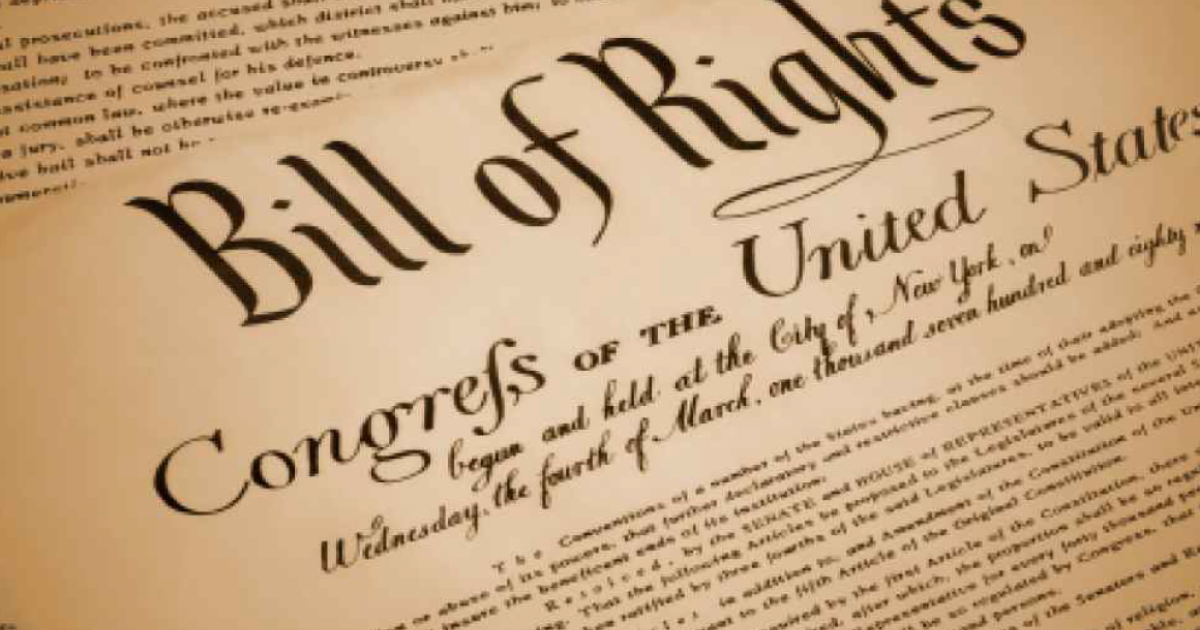 prosecutions, the accused
have been committed, which district shall
to be confronted with the witnesses against him;
assistance of counsel for his defence.
common law, where the value in controversy
jury, shall be otherwise
bail shall not
Bill of Rights
Congreſs OF THE United States
begun and held at the City of New York, on
Wednesday, the fourth of March, one thousand seven hundred and eighty
The Conventions of a number of the States having, at the time of their adopting the
of its powers, that further declaratory and restrictive clauses should be added: And
insure the beneficent ends of its institution;
Resolved, by the SENATE and HOUSE of REPRESENTATIVES of the
That the following Articles be proposed to the Legislatures of the several
when ratified by three fourths of the said Legislatures, to be valid to all
in addition to, and Amendment of the Constitution of the
to the fifth Article of the Original Constitution.
required by the first Article of the Constitution, there
after which, the proportion shall be so
Representative for every forty thousand
be so regulated by Congress, that
persons.
of the Senators and
of religion,